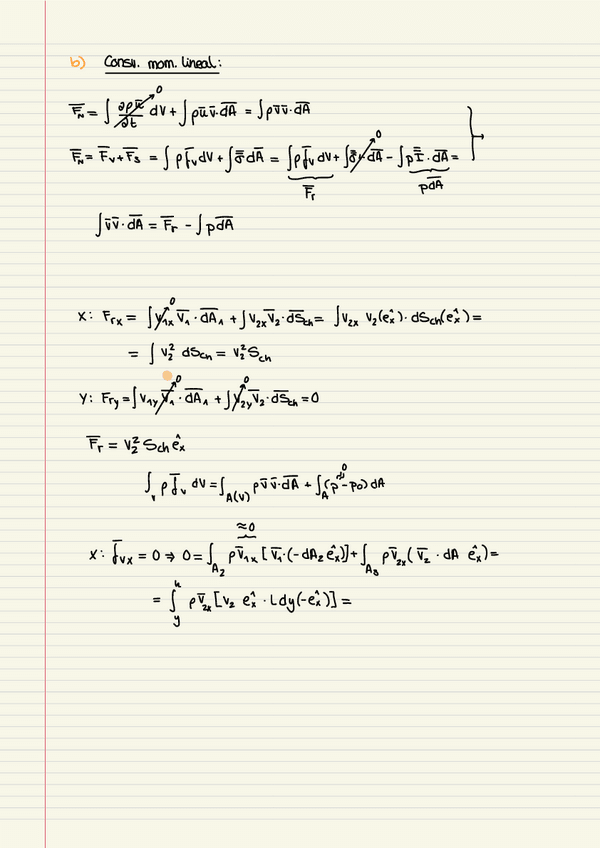 b) Consv. mom. lineal:
F̅_N = ∫ ∂ρu̅/∂t dV + ∫ρu̅ v̅·d̅A̅ = ∫ρv̅v̅·d̅A̅
0
F̅_N = F̅_V + F̅_S = ∫ρf̅_v dV + ∫σ̿ d̅A̅ = ∫ρf̅_v dV + ∫σ̿' d̅A̅ - ∫pI̿·d̅A̅ =
0
F̅_r pd̅A̅
∫v̅v̅·d̅A̅ = F̅_r - ∫pd̅A̅
x: F_rx = ∫v_1x v̅_1·d̅A̅_1 + ∫v_2x v̅_2·d̅S̅_ch = ∫v_2x v_2(e_x^)·dS_ch(e_x^) =
0
= ∫ v_2^2 dS_ch = v_2^2 S_ch
y: F_ry = ∫v_1y v̅_1·d̅A̅_1 + ∫v_2y v̅_2·d̅S̅_ch = 0
0 0
F̅_r = v_2^2 S_ch e_x^
∫_v ρ f̅_v dV = ∫_A(v) ρv̅ v̅·d̅A̅ + ∫_A (p - p0) dA
0
≈0
x: f̅_vx = 0 ⇒ 0 = ∫_A2 ρv̅_1x [v̅_1·(-dA_2 e_x^)] + ∫_A3 ρv̅_2x (v̅_2 · dA e_x^) =
= ∫_y^h ρ v̅_2x [v_2 e_x^ · L dy(-e_x^)] =